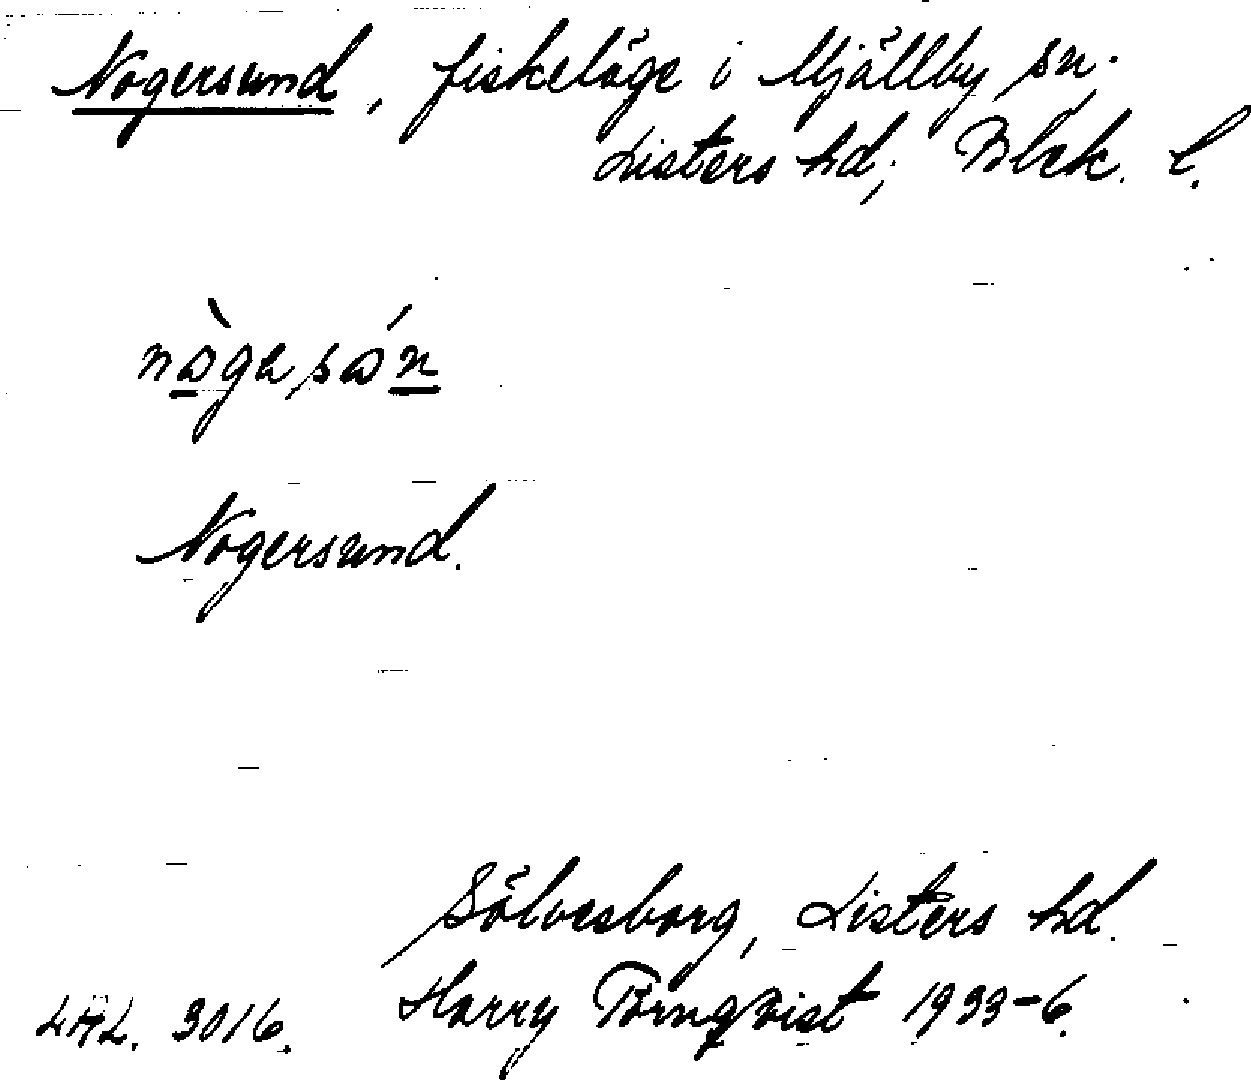 Nogersund, fiskeläge i Mjällby sn.
Listers hd, Blek. l.
Nogersund.
Sölvesborg, Listers hd.
LAL. 3016. Harry Törnqvist 1933-6.